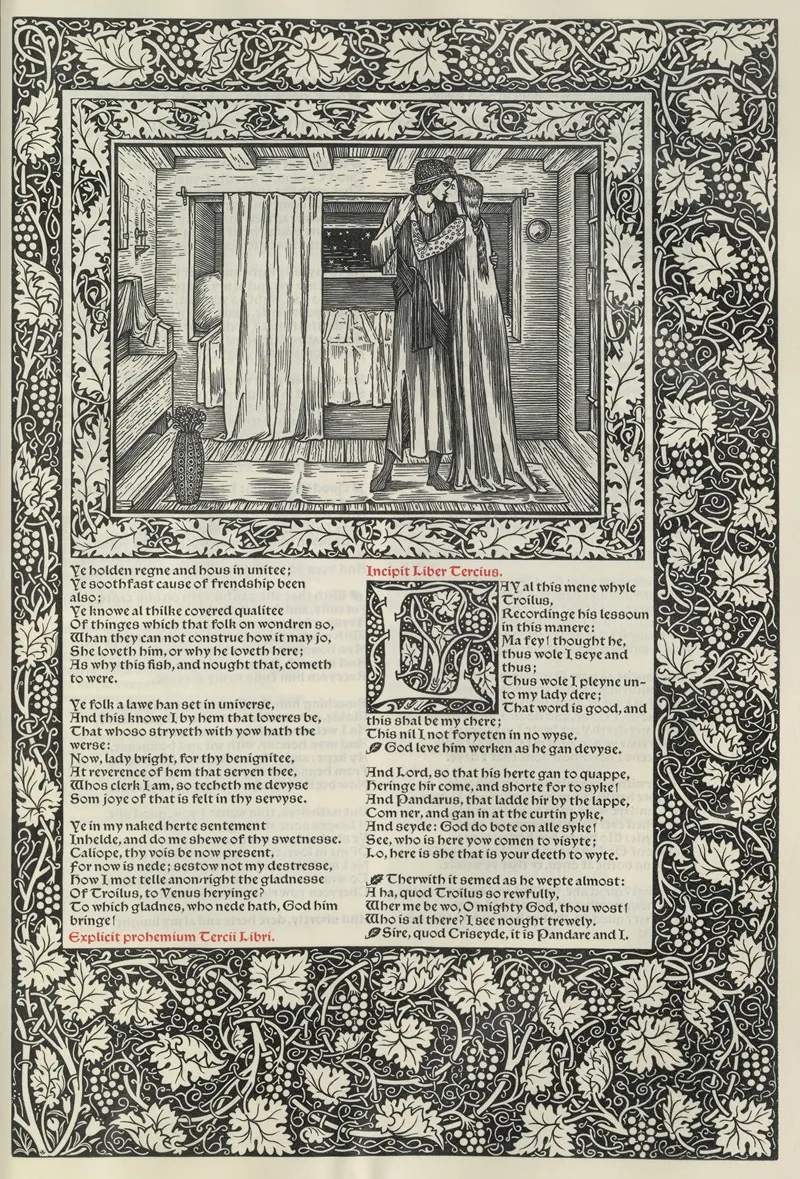 Ye holden regne and hous in unitee;
Ye soothfast cause of frendship been
also;
Ye knowe al thilke covered qualitee
Of thinges which that folk on wondren so,
Whan they can not construe how it may jo,
She loveth him, or why he loveth here;
As why this fish, and nought that, cometh
to were.
Ye folk a lawe han set in universe,
And this knowe I by hem that loveres be,
That whoso stryveth with yow hath the
werse:
Now, lady bright, for thy benignitee,
At reverence of hem that serven thee,
Whos clerk I am, so techeth me devyse
Som joye of that is felt in thy servyse.
Ye in my naked herte sentement
Inhelde, and do me shewe of thy swetnesse.
Caliope, thy vois be now present,
For now is nede; sestow not my destresse,
How I mot telle anon/right the gladnesse
Of Troilus, to Venus heryinge?
To which gladnes, who nede hath, God him
bringe!
Explicit prohemium Tercii Libri.
Incipit Liber Tercius.
LAY al this mene whyle
Troilus,
Recordinge his lessoun
in this manere;
Ma fey! thought he,
thus wole I seye and
thus;
Thus wole I pleyne un-
to my lady dere;
That word is good, and
this shal be my chere;
This nil I not foryeten in no wyse.
God leve him werken as he gan devyse.
And Lord, so that his herte gan to quappe,
Heringe hir come, and shorte for to syke!
And Pandarus, that ladde hir by the lappe,
Com ner, and gan in at the curtin pyke,
And seyde: God do bote on alle syke!
See, who is here yow comen to visyte;
Lo, here is she that is your deeth to wyte.
Therwith it semed as he wepte almost:
A ha, quod Troilus so rewfully,
Wher me be wo, O mighty God, thou wost!
Who is al there? I see nought trewely.
Sire, quod Criseyde, it is Pandare and I.